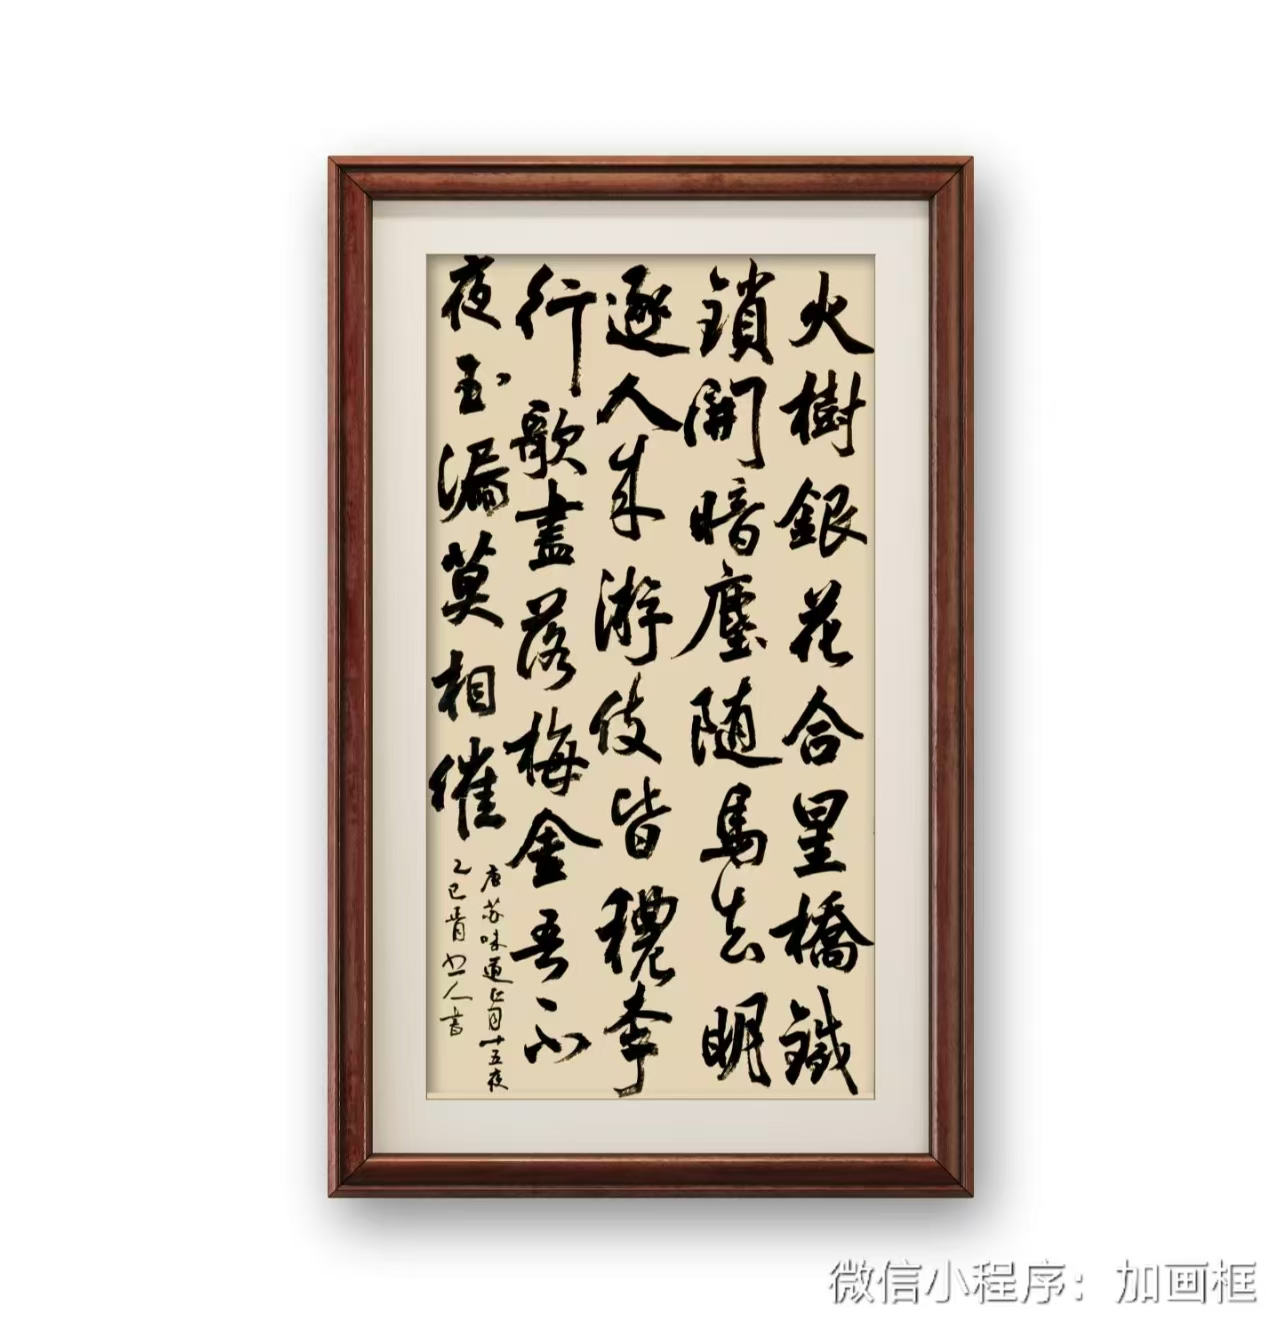 火樹銀花合星橋鐵
鎖開暗塵随馬去明
逐人来游伎皆穠李
行歌盡落梅金吾不
夜玉漏莫相催
唐苏味道正月十五夜
乙巳
微信小程序：加画框